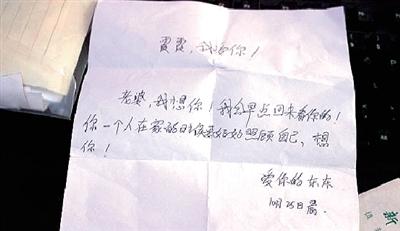 霞霞，我爱你！
老婆，我想你！我会早点回来看你的！
你一个人在家的时候要好好照顾自己，想
你！
爱你的东东
10月25日晨.
新